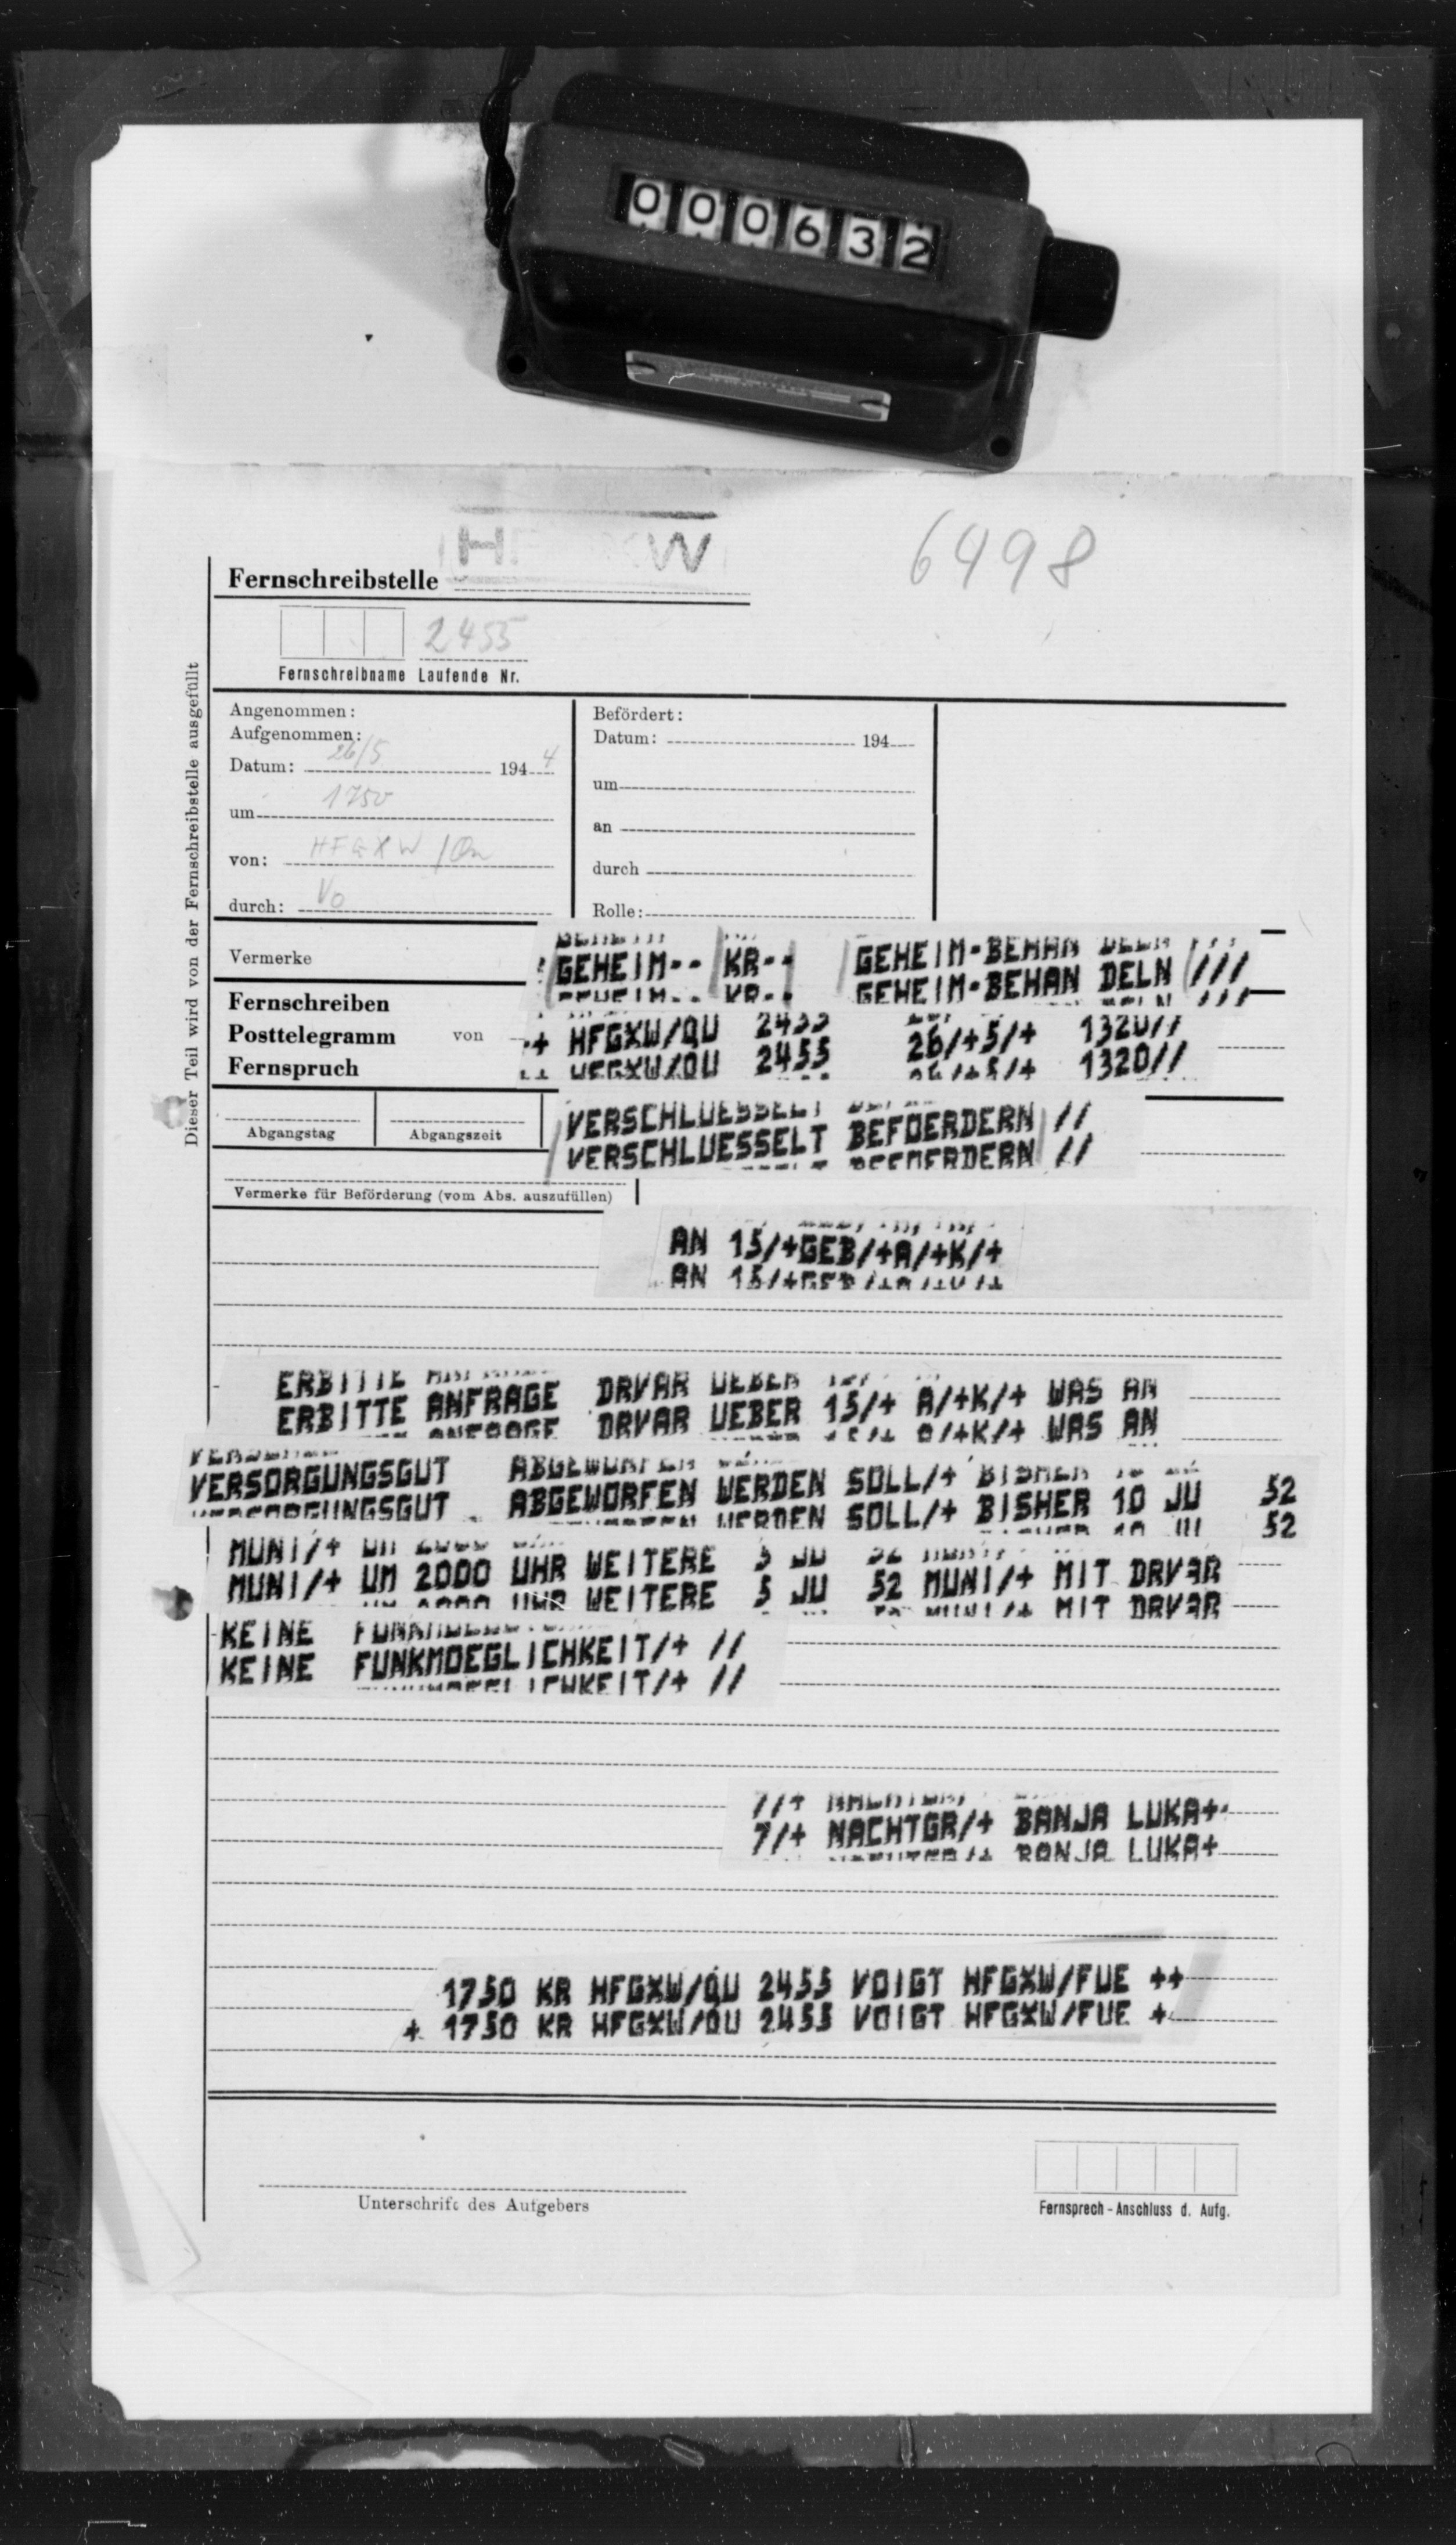 000632
6498
HF XW
Fernschreibstelle
2455
Fernschreibname Laufende Nr.
Dieser Teil wird von der Fernschreibstelle ausgefüllt
Angenommen:
Aufgenommen:
Datum: 26/5 194 4
um 1750
von: HFGXW /
durch: Vo
Befördert:
Datum: 194
um
an
durch
Rolle:
Vermerke
GEHEIM-- KR-- GEHEIM-BEHAN DELN ///
Fernschreiben
Posttelegramm von
Fernspruch
+ HFGXW/QU 2455 26/+5/+ 1320//
Abgangstag Abgangszeit
VERSCHLUESSELT BEFOERDERN //
Vermerke für Beförderung (vom Abs. auszufüllen)
AN 15/+GEB/+A/+K/+
ERBITTE ANFRAGE DRVAR UEBER 15/+ A/+K/+ WAS AN
VERSORGUNGSGUT ABGEWORFEN WERDEN SOLL/+ BISHER 10 JU 52
MUNI/+ UM 2000 UHR WEITERE 5 JU 52 MUNI/+ MIT DRVAR
KEINE FUNKMOEGLICHKEIT/+ //
7/+ NACHTGR/+ BANJA LUKA+
1750 KR HFGXW/QU 2455 VOIGT HFGXW/FUE ++
+ 1750 KR HFGXW/QU 2455 VOIGT HFGXW/FUE +
Unterschrift des Aufgebers
Fernsprech-Anschluss d. Aufg.